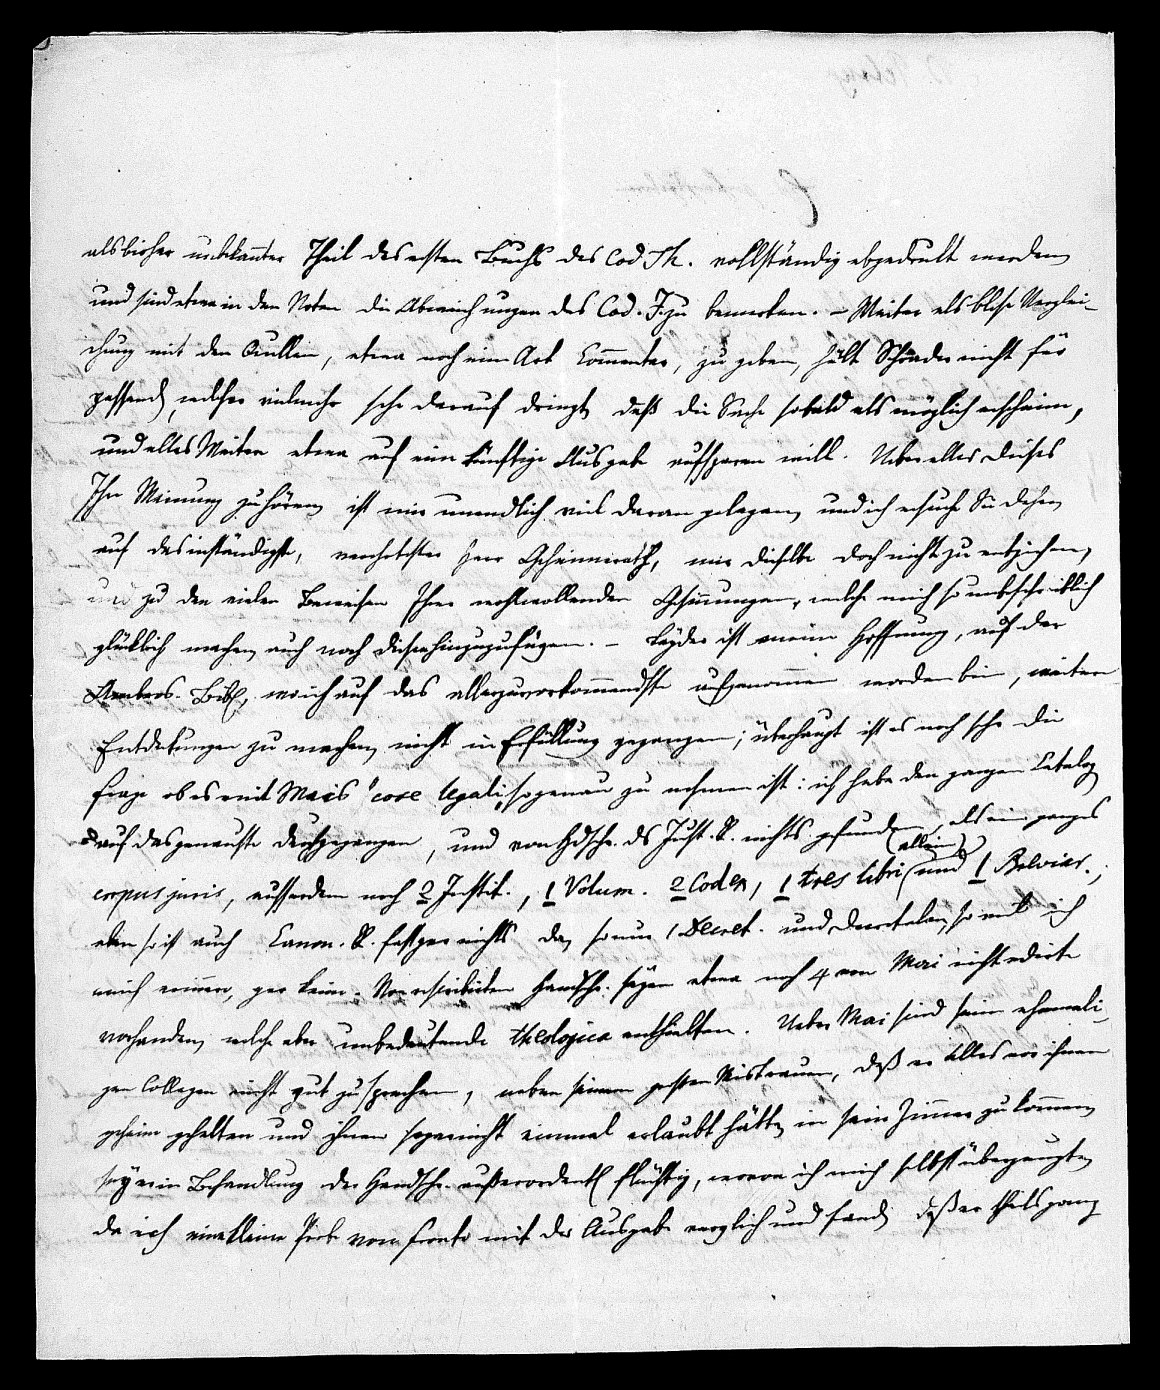 als bisher unbekannter Theil des ersten Buchs des Cod Th. vollständig abgedrukt werden
und sind etwa in den Noten die Abweichungen des Cod. J. zu bemerken. – Weiter als blose Verglei-
chung mit den Quellen, etwa noch eine Art Commentar, zu geben, hält Schrader nicht für
passend, welcher vielmehr sehr darauf dringt, daß die Sache sobald als möglich erscheine,
und alles Weitere etwa auf eine künftige Ausgabe aufsparen will. Ueber alles dieses
Ihre Meinung zu hören, ist mir unendlich viel daran gelegen, und ich ersuche Sie daher
auf das inständigste, verehrtester Herr Geheimerath, mir dieselbe doch nicht zu entziehen,
und zu den vielen Beweisen Ihrer wohlwollenden Gesinnungen, welche mich so unbeschreiblich
glüklich machen, auch noch diesen hinzuzufügen. – Leyder ist meine Hoffnung, auf der
Ambros. Bibl., wo ich auf das allerzuvorkommendste aufgenommen worden bin, weitere
Entdekungen zu machen, nicht in Erfüllung gegangen; überhaupt ist es noch sehr die
Frage ob es mit Mais "cose legali" so genau zu nehmen ist: ich habe den ganzen Catalog
auf das genauste durchgegangen, und von Hdschr. des Just. R. nichts gefunden als ein ganzes
corpus juris, ausserdem noch 2 Instit., 1 Volum. 2 Codex, 1 tres libri (allein) und 1 Breviar.,
eben so ist auch Canon. R. fast gar nichts da, so nur 1 Decret. und Decretalen, so viel ich
mich erinnere, gar keine. Von rescribirten Handschr. seyen etwa noch 4 von Mai nicht edirte
vorhanden, welche aber unbedeutende theologica enthielten. Ueber Mai sind seine ehemali-
gen Collegen nicht gut zu sprechen, neben seinem grosten Mistrauen, daß er Alles vor ihnen
geheim gehalten und ihnen sogar nicht einmal erlaubt hätte, in sein Zimmer zu kommen,
sey er in Behandlung der Handschr. außerordentl. flüchtig, wovon ich mich selbst überzeugte,
da ich eine kleine Probe von Fronto mit der Ausgabe verglich und fand, daß er theils ganz